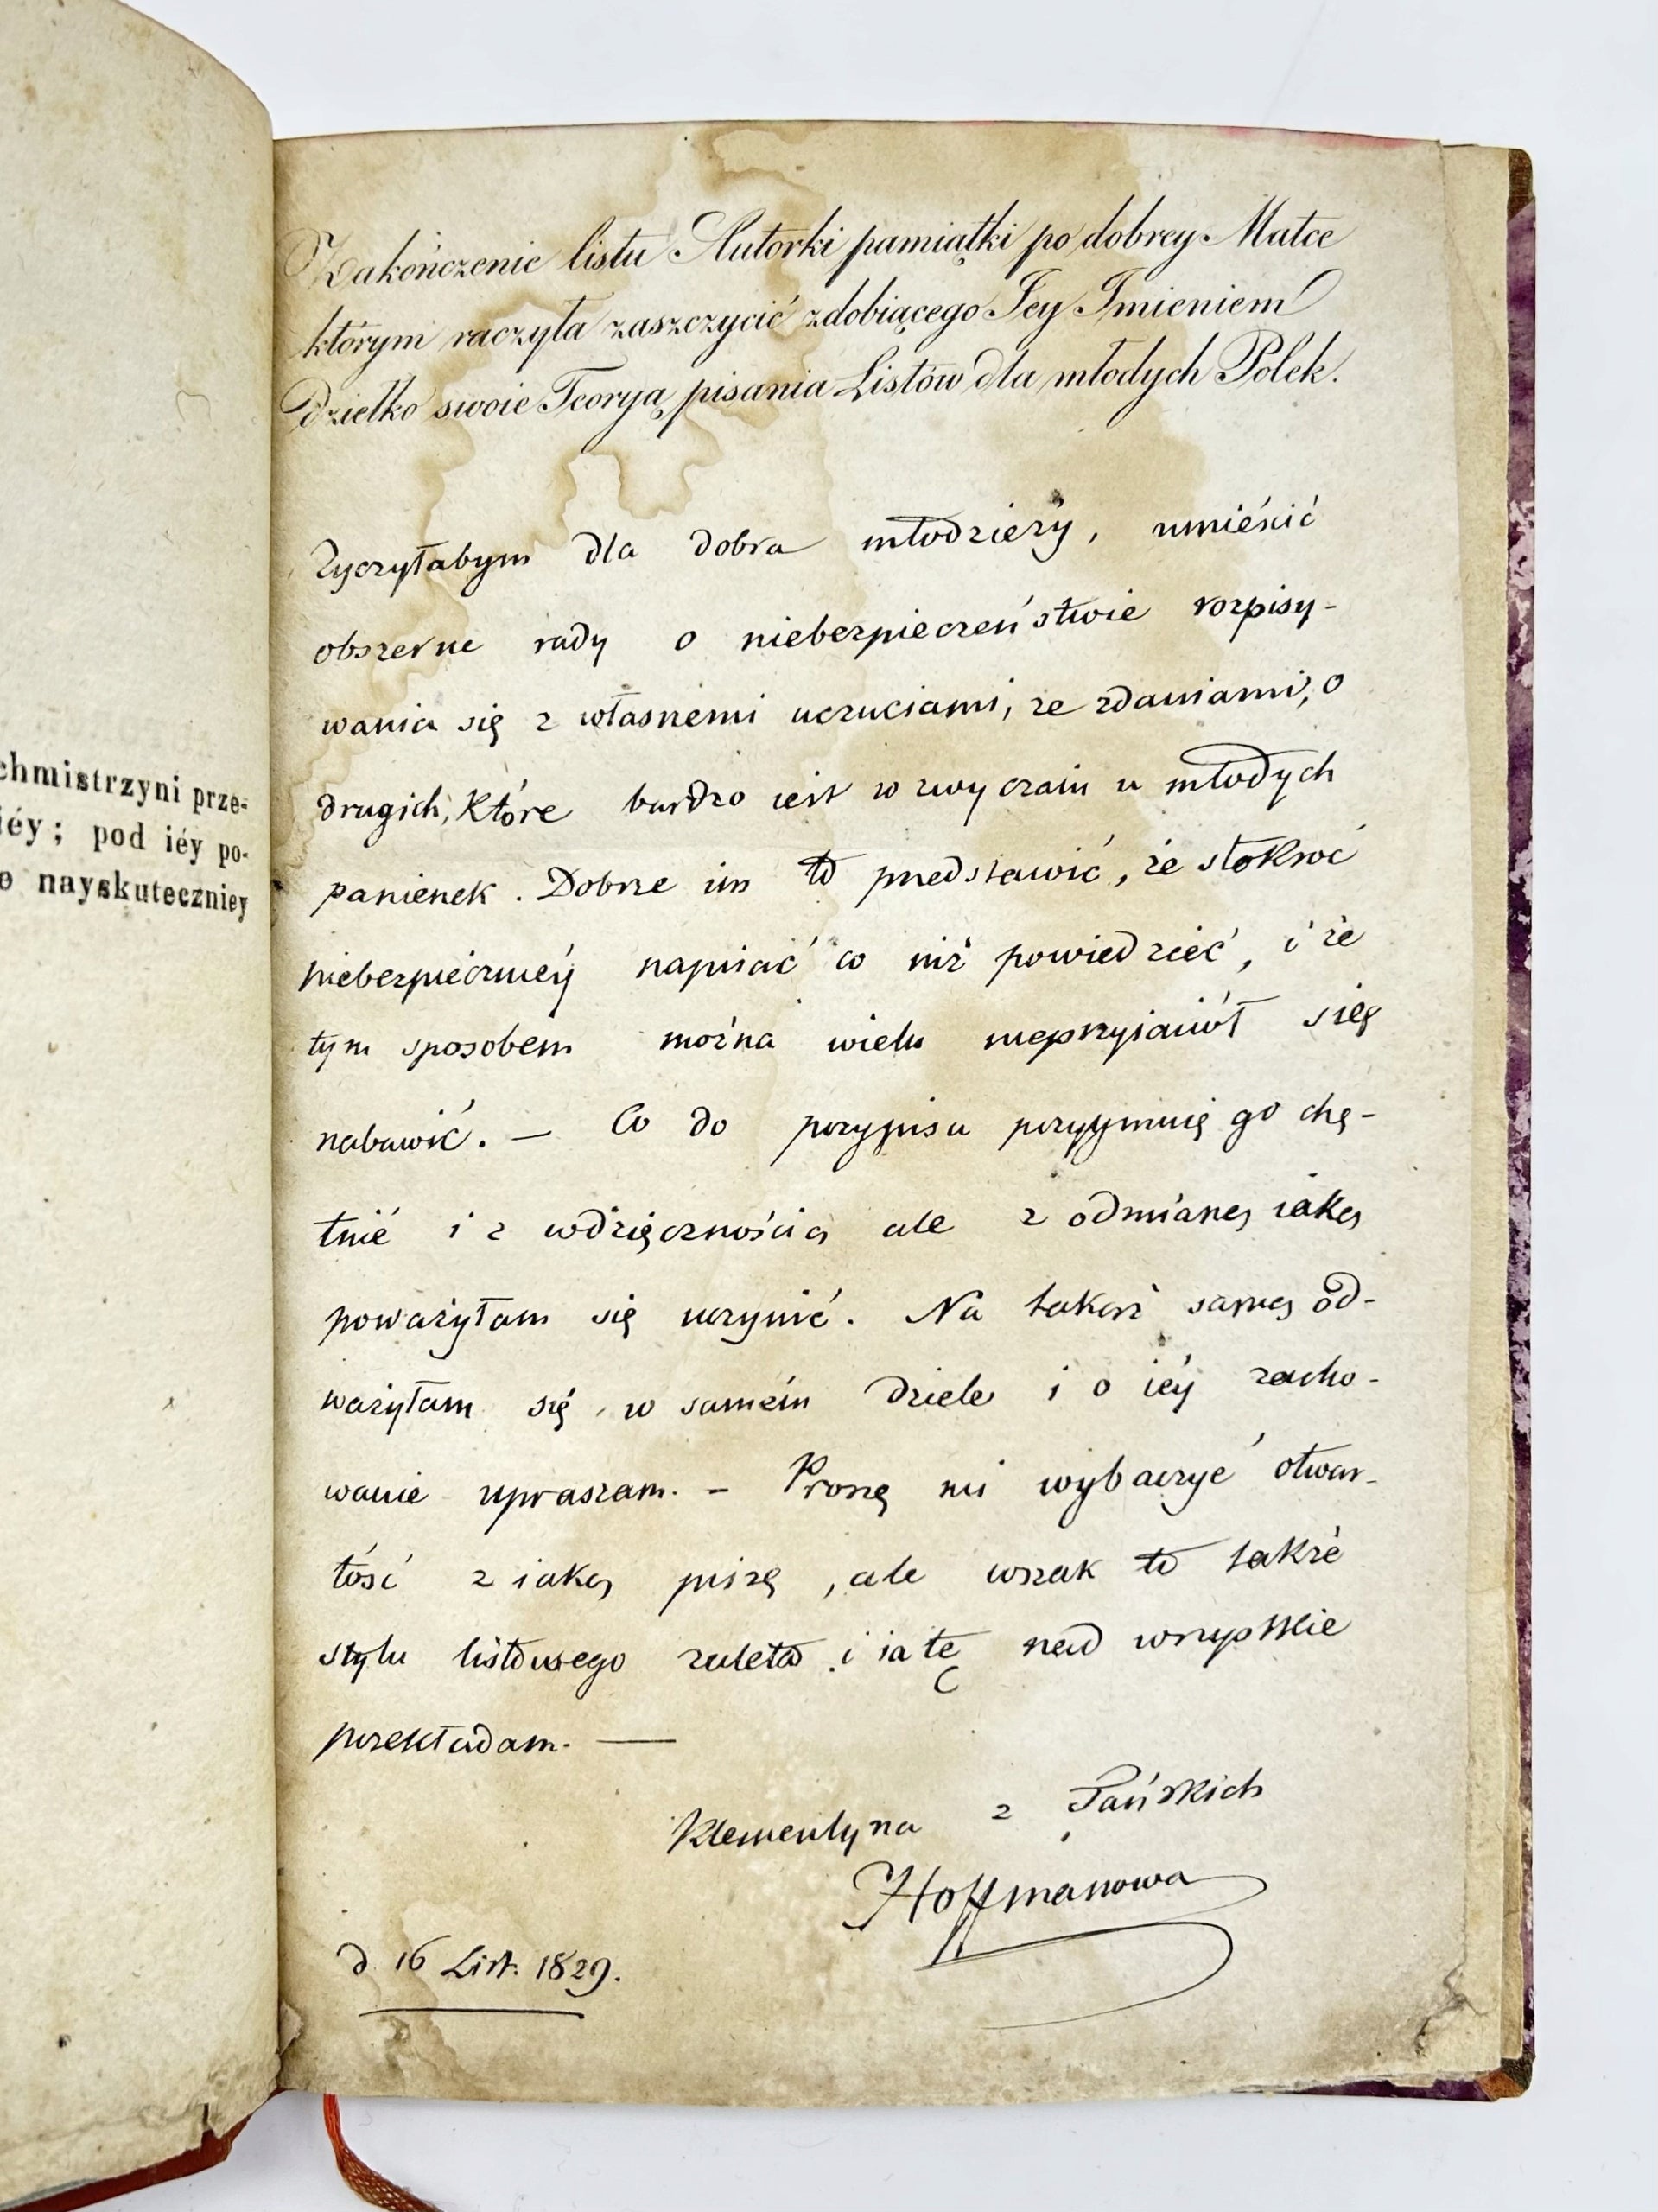 chmistrzyni prze-
iéy; pod iéy po-
o nayskuteczniey
Zakończenie listu Autorki pamiątki po dobrey Matce
którym raczyła zaszczycić zdobiącego Jey Imieniem
dziełko swoie Teoryą pisania Listów dla młodych Polek.
Życzyłabym dla dobra młodzieży, umieścić
obszerne rady o niebezpieczeństwie rozpisy-
wania się z własnemi uczuciami, ze zdaniami, o
drugich, które bardzo iest w zwyczaiu u młodych
panienek. Dobrze im to przedstawić, że stokroć
niebezpieczniéy napisać co niż powiedzieć, i że
tym sposobem można wielu nieprzyiaciół się
nabawić. — Co do przypisu przyymuię go chę-
tnie i z wdzięcznością ale z odmianą iaką
poważyłam się uczynić. Na takąż samą od-
ważyłam się w samém dziele i o iéy zacho-
wanie upraszam. — Proszę mi wybaczyć otwar-
tość z iaką piszę, ale wszak to także
stylu listowego zaleta i ia tę nad wszystkie
przekładam. —
Klementyna z Tańskich
Hoffmanowa
d. 16 List. 1829.